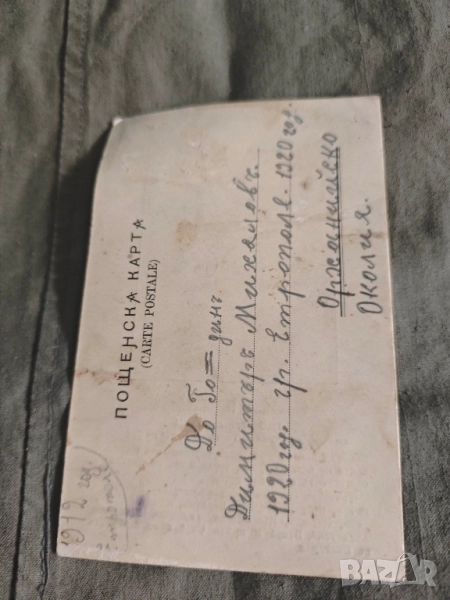 ПОЩЕНСКА КАРТА
(CARTE POSTALE)
До Го=динъ
Димитъръ Михаловъ.
1920 год. гр. Етрополе. 1920 год.
Орханийско
Околия.
1912 год
BAZAR